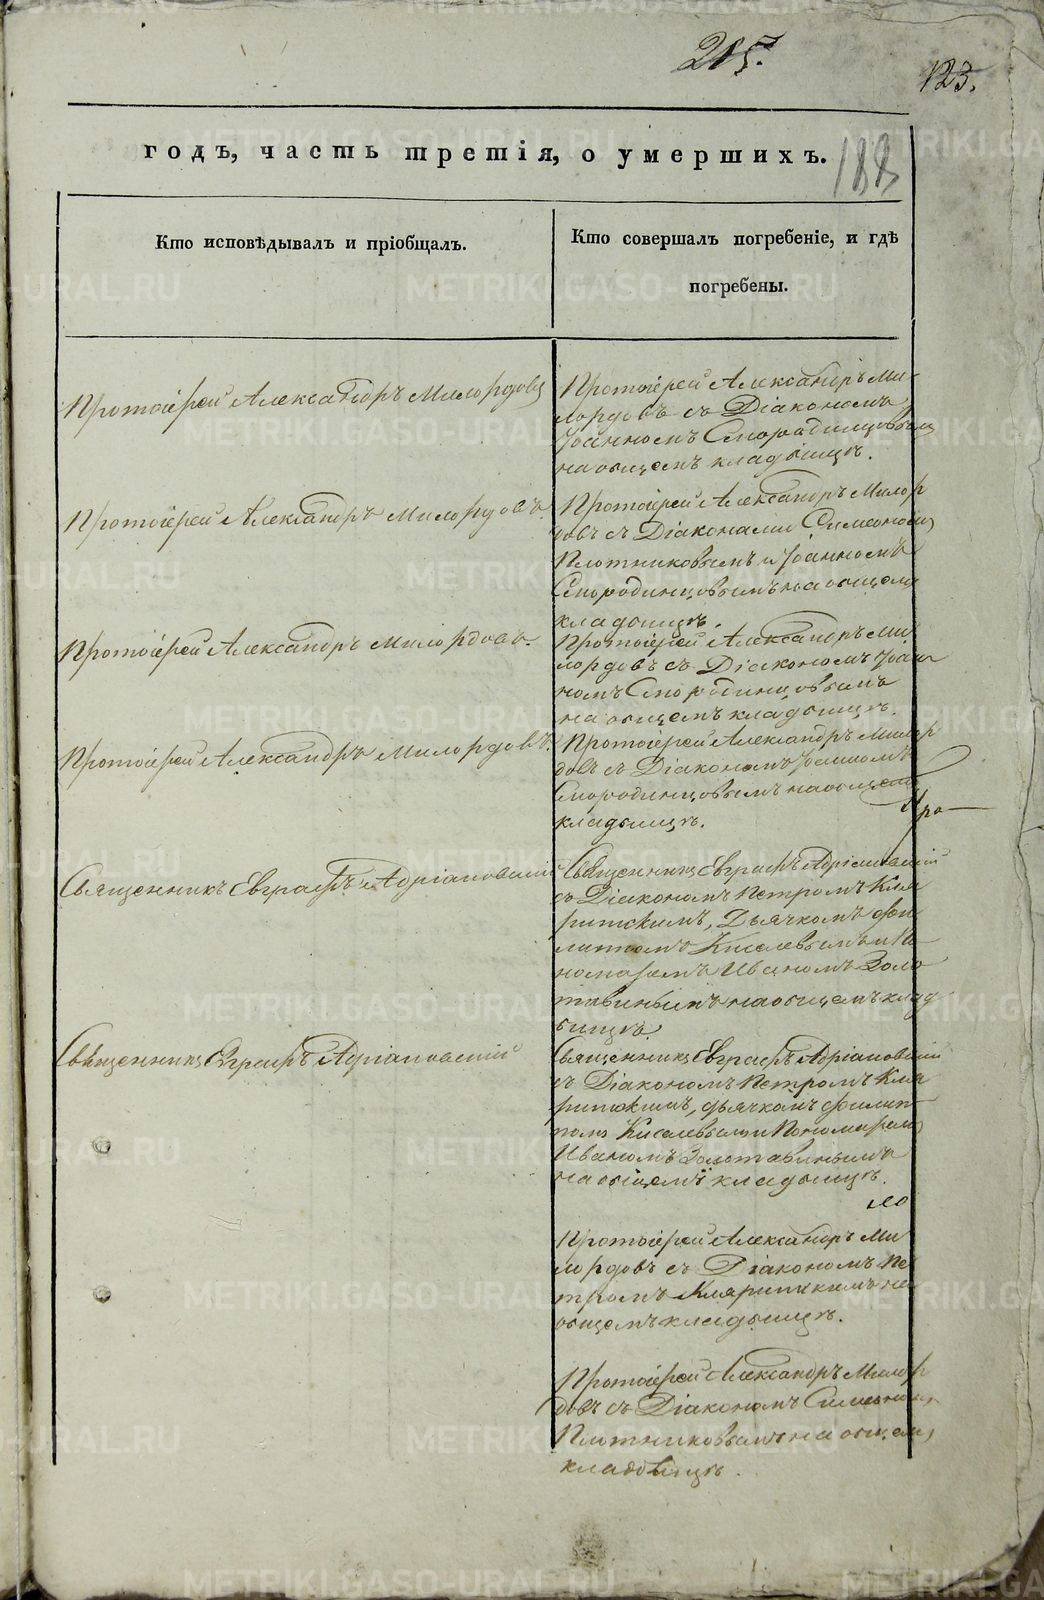 215.
123.
годъ, часть третія, о умершихъ.
188
Кто исповѣдывалъ и пріобщалъ.
Кто совершалъ погребеніе, и гдѣ
погребены.
Протоіерей Александръ Милордовъ
Протоіерей Александръ Ми-
лордовъ съ Діакономъ
Іоанномъ Смородинцовымъ
на общемъ кладбищѣ.
Протоіерей Александръ Милордовъ.
Протоіерей Александръ Милор
довъ съ Діаконами Симеономъ
Плотниковымъ и Іоанномъ
Смородинцовымъ на общемъ
кладбищѣ.
Протоіерей Александръ Милордовъ.
Протоіерей Александръ Ми
лордовъ съ Діакономъ Іоан
номъ Смородинцовымъ
на общемъ кладбищѣ.
Протоіерей Александръ Милордовъ.
Протоіерей Александръ Милор
довъ съ Діакономъ Іоанномъ
Смородинцовымъ на общемъ
кладбищѣ.
Про
Священникъ Евграфъ Адріановскій
Священникъ Евграфъ Адріановскій
съ Діакономъ Петромъ Кля
ритскимъ, Дьячкомъ Фи
липпомъ Киселевымъ и По
номаремъ Иваномъ Золо
тавинымъ на общемъ клад
бищѣ
Священникъ Евграфъ Адріановскій
Священникъ Евграфъ Адріановскій
съ Діакономъ Петромъ Кля
ритскимъ, дьячкомъ Филип
помъ Киселевымъ и Пономаремъ
Иваномъ Золотавинымъ
на общемъ кладбищѣ.
Протоіерей Александръ Ми
лордовъ съ Діакономъ Пе
тромъ Кляритскимъ на
общемъ кладбищѣ.
Протоіерей Александръ Милор
довъ съ Діакономъ Симеономъ
Плотниковымъ на общемъ
кладбищѣ.
METRIKI.GASO-URAL.RU